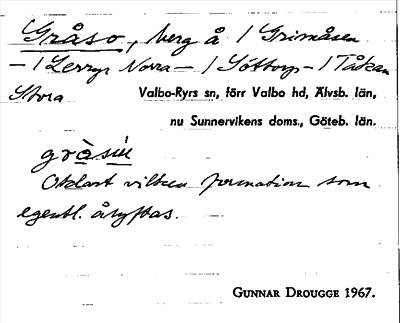 Gråso, berg å 1 Grimåsen
– 1 Lerryr Norra – 1 Söttorp – 1 Tåkan
Stora Valbo-Ryrs sn, förr Valbo hd, Älvsb. län,
nu Sunnervikens doms., Göteb. län.
Oklart vilken formation som
egentl. åsyftas.
GUNNAR DROUGGE 1967.